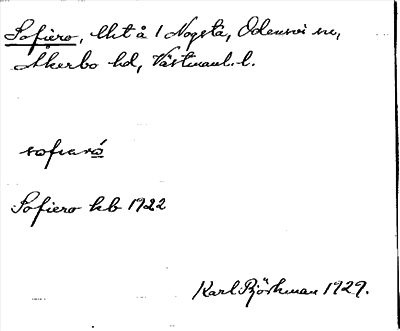 Sofiero, lht å 1 Nogsta, Odensvi sn,
Åkerbo hd, Västmanl. l.
sofiaró
Sofiero kb 1922
Karl Björkman 1929.